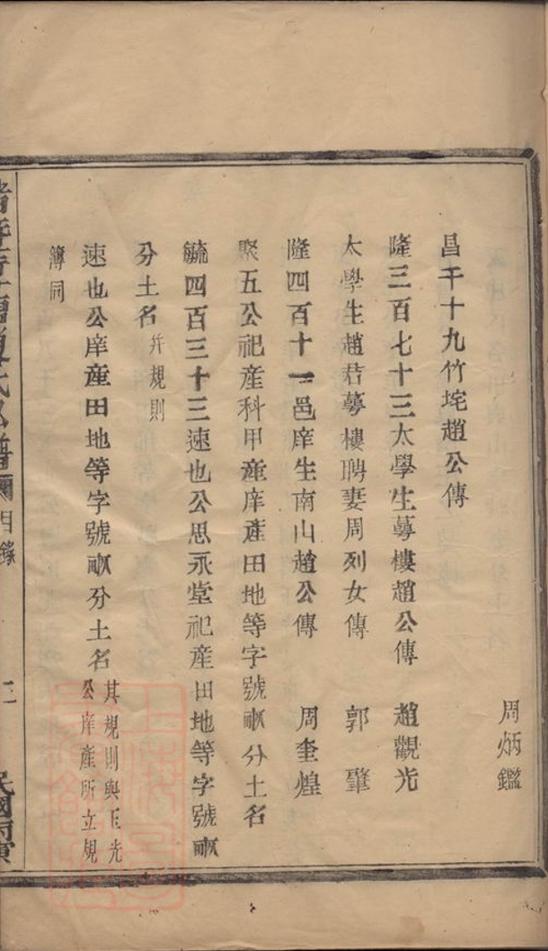 周炳鑑
昌千十九竹垞趙公傳
隆三百七十三太學生蕚樓趙公傳 趙觀光
太學生趙君蕚樓聘妻周列女傳 郭肇
隆四百十一邑庠生南山趙公傳 周奎煌
聚五公祀產科甲產庠產田地等字號畝分土名
毓四百三十三速也公思永堂祀產田地等字號畝
分土名 并規則
速也公庠產田地等字號畝分土名 其規則與正光
公庠產所立規
簿同
目錄 二